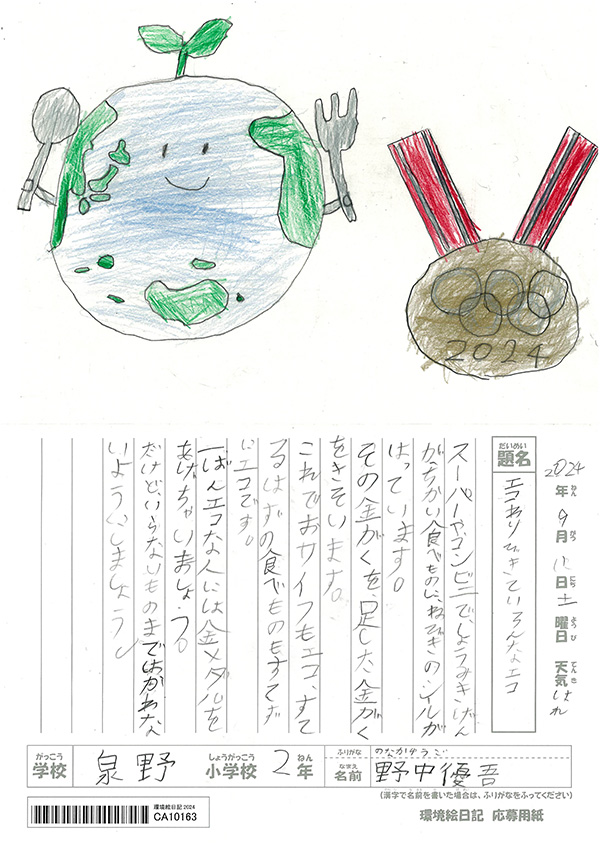 2024
2024年9月 日土曜日 天気はれ
ねん がつ にち ようび てんき
だいめい
題名
スーパーやコンビニで、しょうみきげん
がちかい食べものに、ねびきのシールが
はっています。
その金がくを足した金がく
をきそいます。
これでおサイフもエコ、すて
るはずの食べものもすてず
にエコです。
一ばんエコな人には金メダルを
あげちゃいましょう。
だけど、いらないものまではかわな
いようにしましょう。
がっこう
学校
泉野
しょうがっこう
小学校
2年
ねん
ふりがな
のなかゆうご
なまえ
名前
野中優吾
(漢字で名前を書いた場合は、ふりがなをふってください)
環境絵日記2024
CA10163
環境絵日記 応募用紙